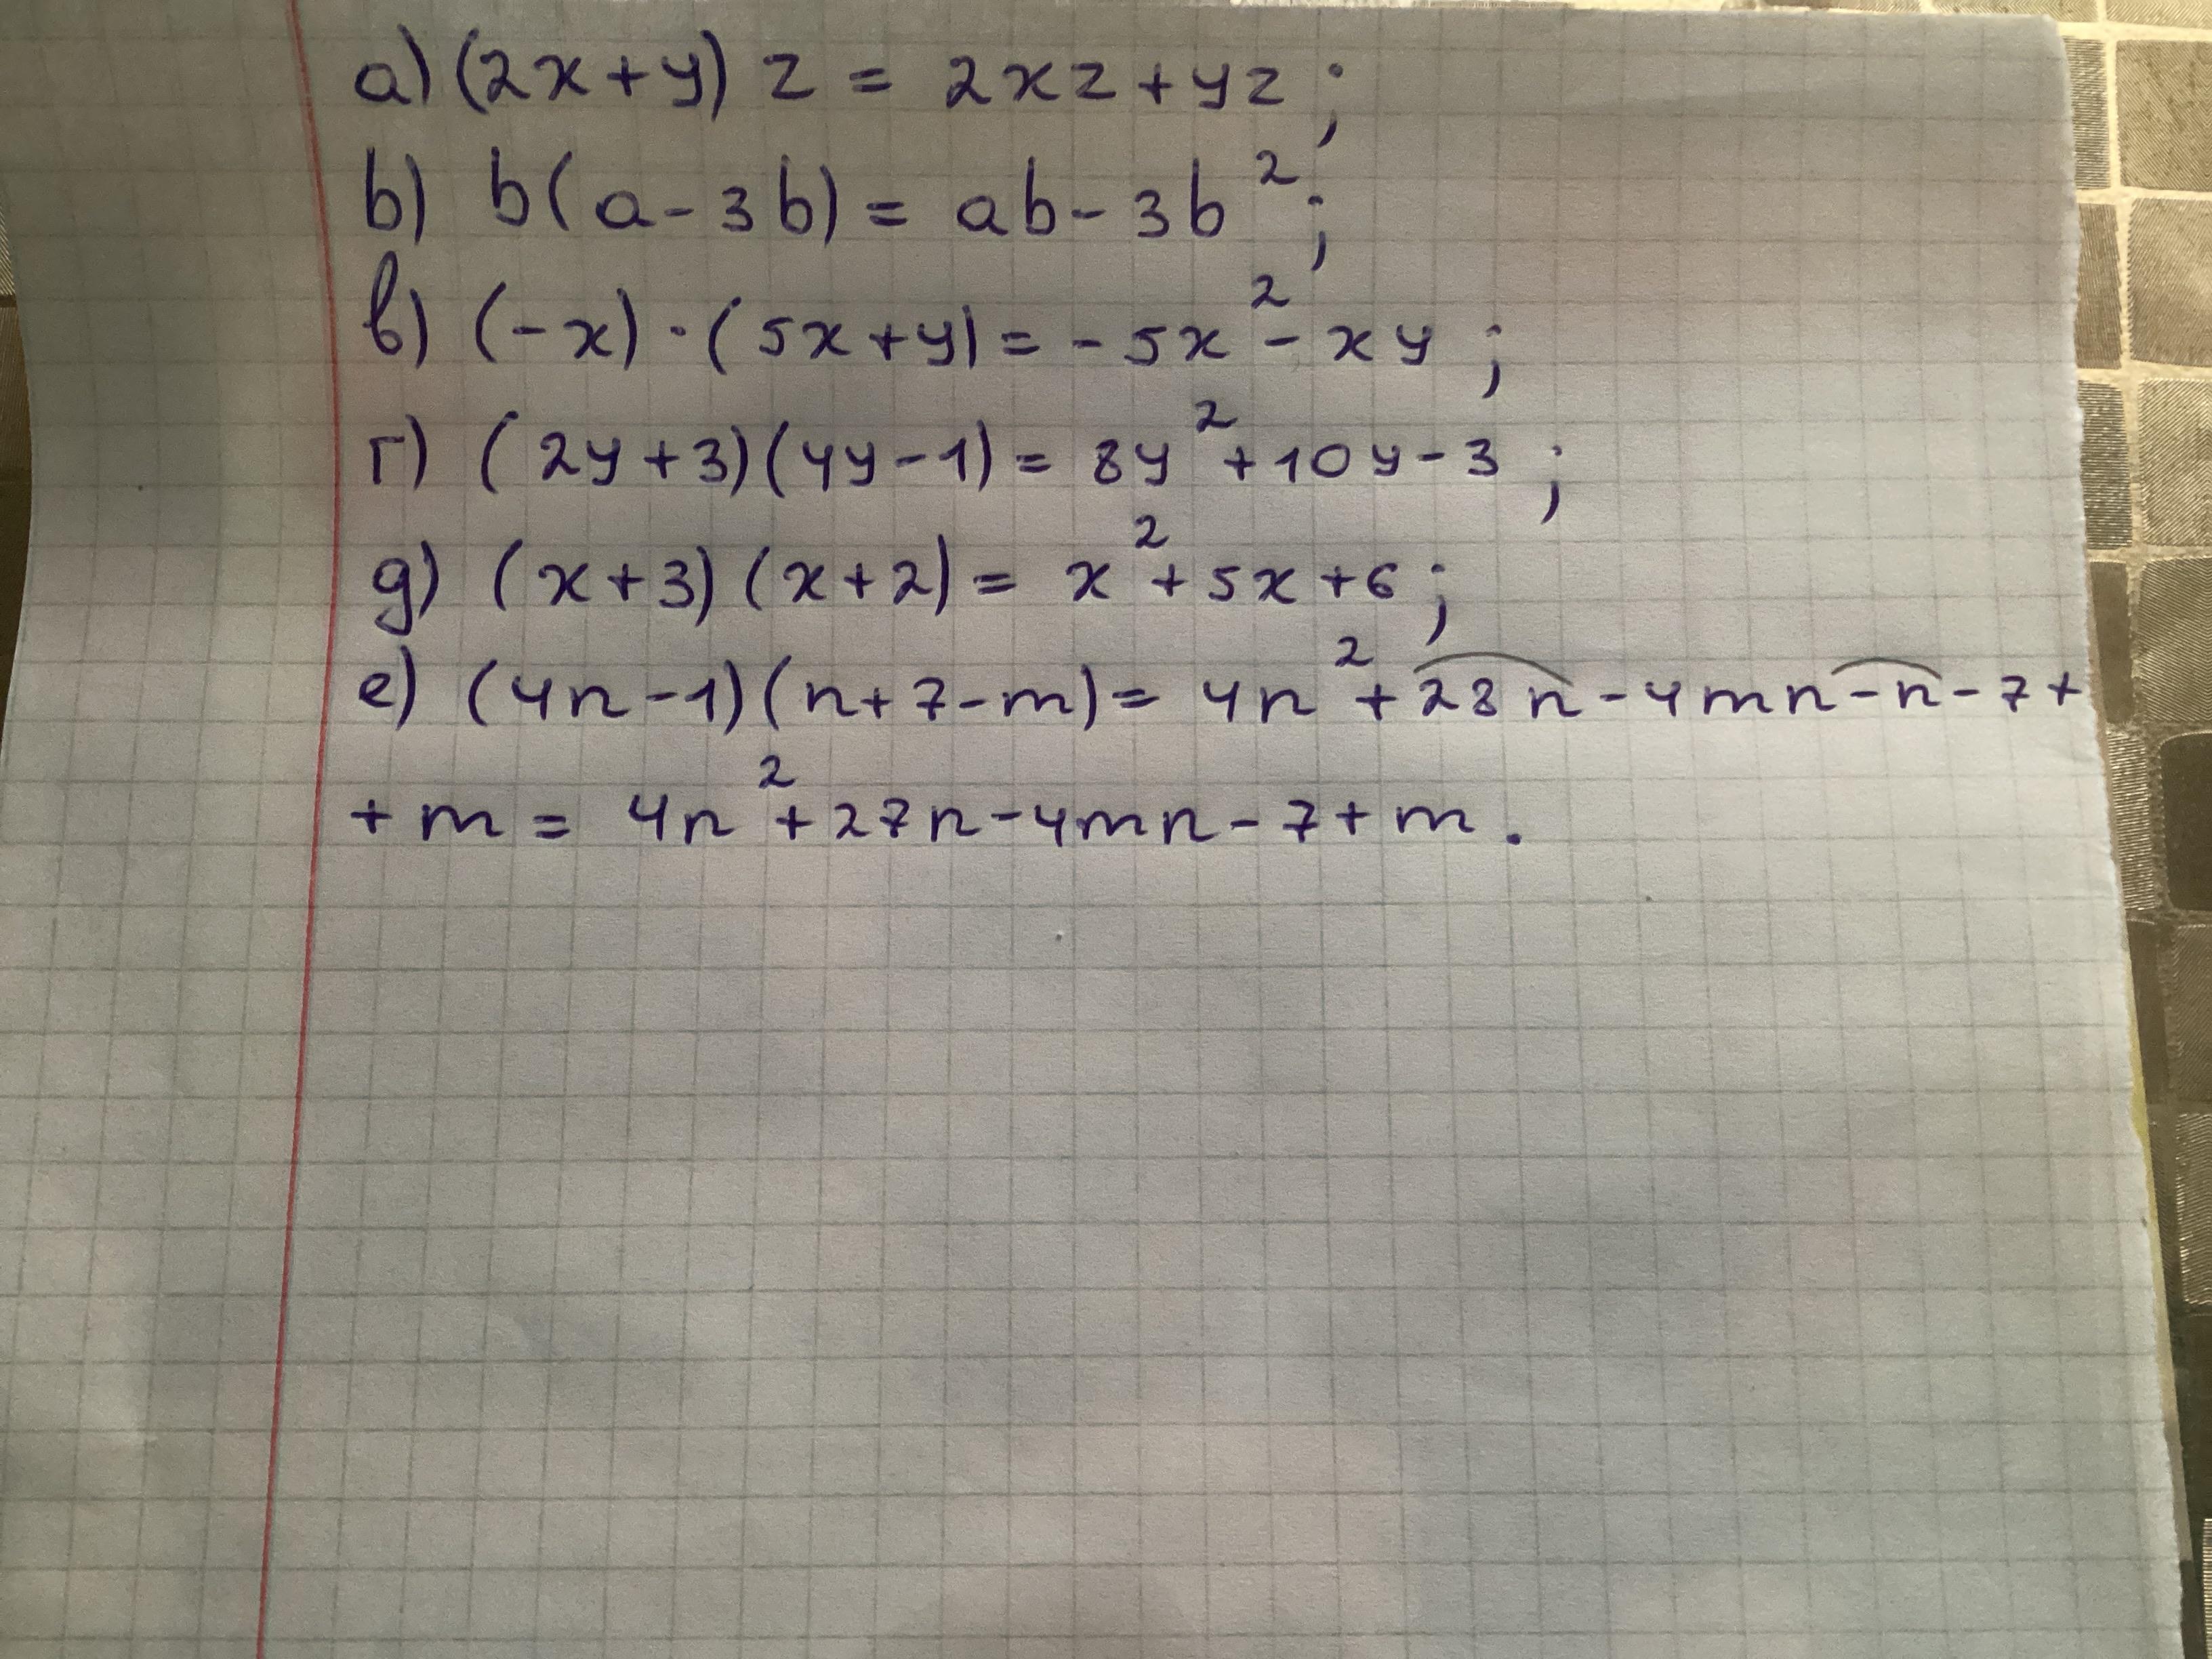 а) (2x+y) z = 2xz+yz;
b) b(a-3b) = ab-3b²;
в) (-x)·(5x+y) = -5x²-xy;
г) (2y+3)(4y-1) = 8y²+10y-3;
д) (x+3)(x+2) = x²+5x+6;
е) (4n-1)(n+7-m) = 4n²+28n-4mn-n-7+
+m = 4n²+27n-4mn-7+m.